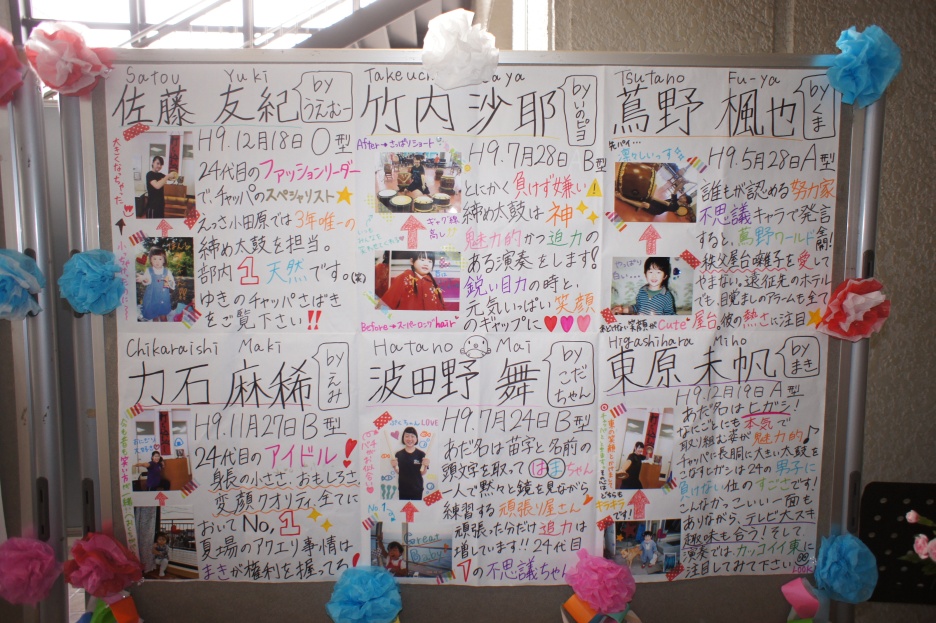 Satou Yuki
佐藤 友紀
by うえむー
H9.12月18日 O型
24代目のファッションリーダー
で、チャッパのスペシャリスト
えっさ小田原では3年唯一の
締め太鼓を担当。
部内1天然です。(笑)
ゆきのチャッパさばき
をご覧下さい!!
大きくなっちゃった
Takeuchi Saya
竹内 沙耶
by いのピヨ
After→さっぱりショート
H9.7月28日 B型
とにかく負けず嫌い
締め太鼓は神
魅力的かつ迫力の
ある演奏をします!
鋭い目力の時と、
元気いっぱい笑顔
のギャップに♥♥♥
Before→スーパーロングhair
Tsutano Fu-ya
蔦野 楓也
by くま
凛々しいっす
H9.5月28日 A型
誰もが認める努力家
不思議キャラで発言
すると、蔦野ワールド全開!
秩父屋台囃子を愛して
やまない。遠征先のホテル
でも、目覚ましのアラームも全て
屋台。彼の熱さに注目
あどけない笑顔がCute
Chikaraishi Maki
力石 麻稀
by えみ
H9.11月27日 B型
24代目のアイドル!
身長の小ささ、おもしろさ
変顔クオリティ全てに
おいてNo,1
夏場のアクエリ事情は
まきが権利を握ってる!
Hatano Mai
波田野 舞
by こだちゃん
H9.7月24日 B型
あだ名は苗字と名前の
頭文字を取ってはまちゃん
一人で黙々と鏡を見ながら
練習する頑張り屋さん
頑張った分だけ迫力は
増しています!!24代目
1の不思議ちゃん
Higashihara Miho
東原 未帆
by まき
H9.12月19日 A型
あだ名はヒガシ!
なにごとにも本気で
取り組む姿が魅力的♪
チャッパに長胴に大きい太鼓を
こなすヒガシは24の男子に
負けない位のすごさです!
こんなかっこいい一面も
ありながら、テレビ大スキ
趣味も合う!そして、
演奏ではカッコイイ東に
注目してみて下さい
LOOK!